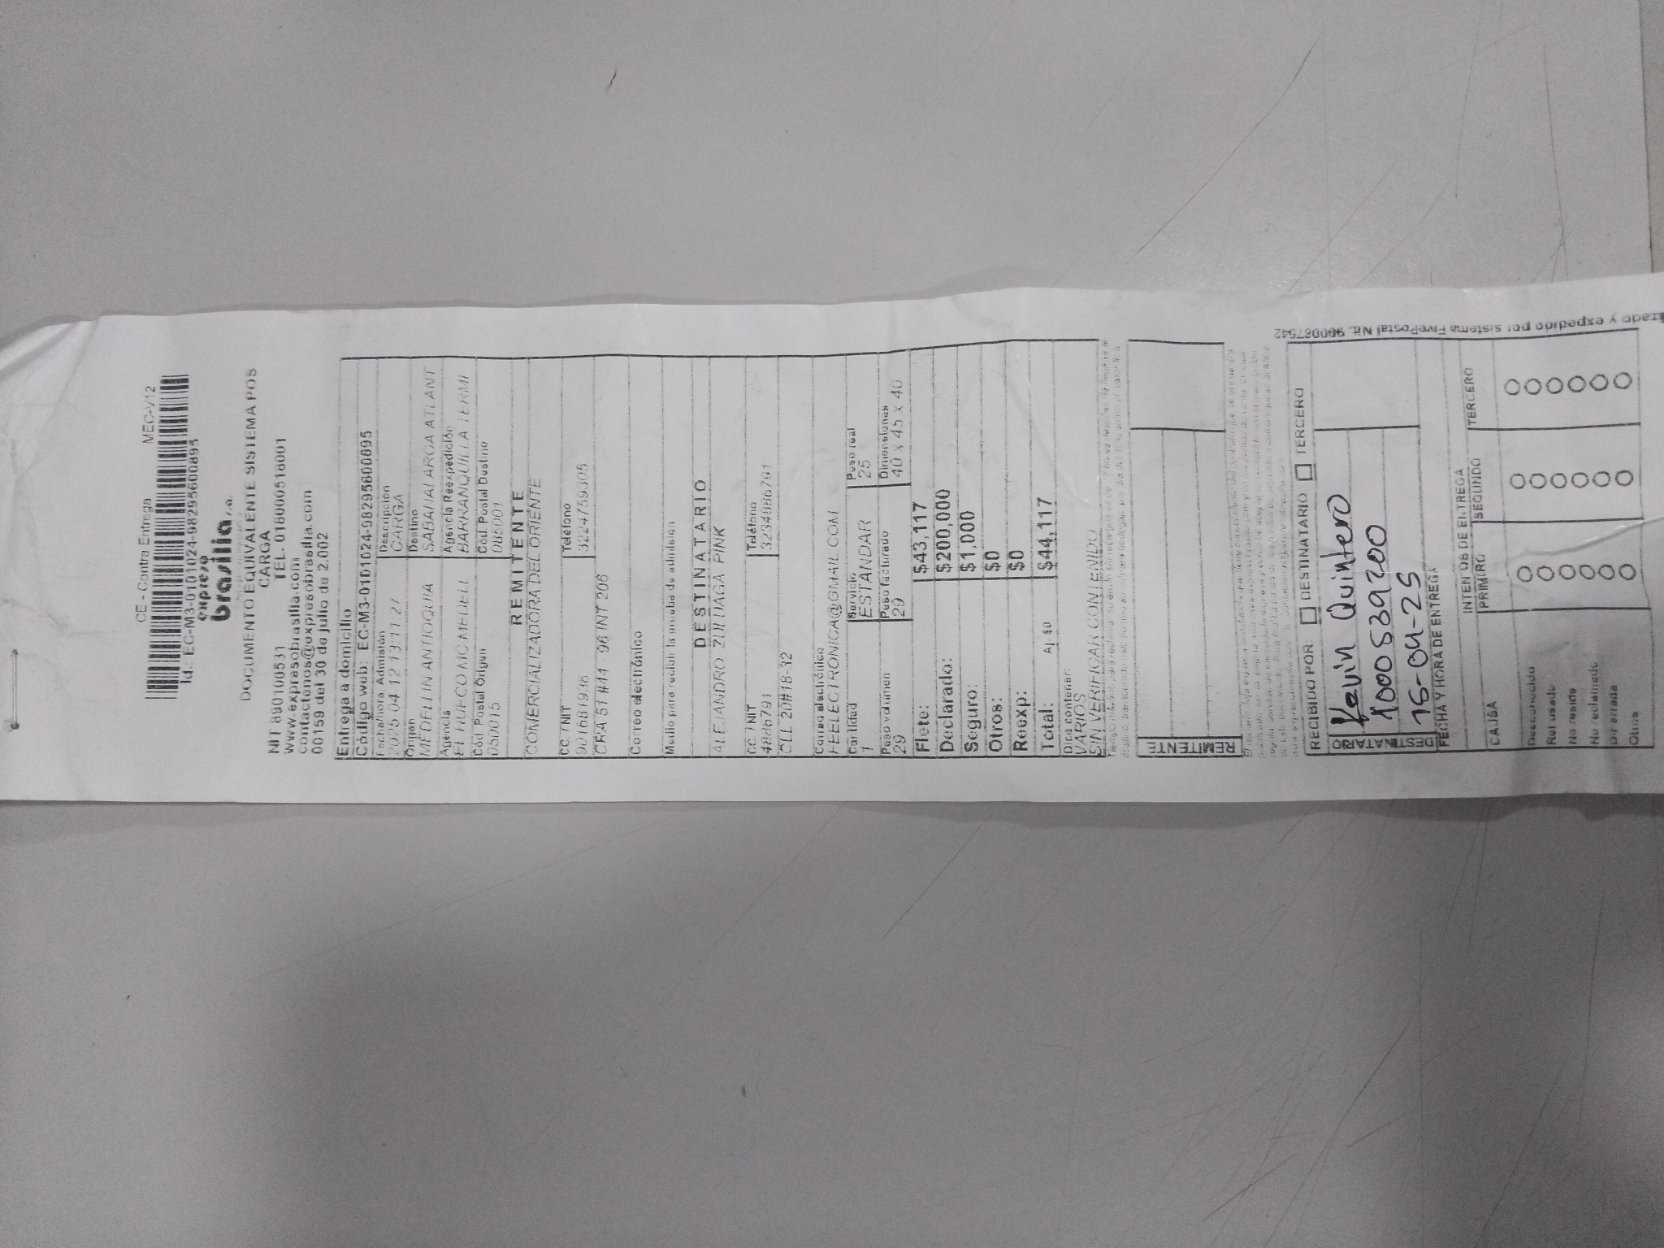 CE - Contra Entrega MEC-V12
Id.: EC-M3-0101024-9829560895
expreso
brasilia s.a.
DOCUMENTO EQUIVALENTE SISTEMA POS
CARGA
NIT 890100531 TEL. 018000518001
www.expresobrasilia.com
contactenos@expresobrasilia.com
00159 del 30 de julio de 2.002
Entrega a domicilio
Código web: EC-M3-0101024-9829560895
Fecha/hora Admisión Descripción
2025-04-12 13:11:27 CARGA
Origen Destino
MEDELLIN ANTIOQUIA SABANALARGA ATLANT
Agencia Agencia Reexpedición
EL HUECO MC MEDELL BARRANQUILLA TERMI
Cód Postal Origen Cód Postal Destino
050015
REMITENTE
COMERCIALIZADORA DEL ORIENTE
CC / NIT Teléfono
3224759305
CRA 51 #44 96 INT 206
Correo electrónico
Medio para recibir la prueba de admisión
DESTINATARIO
ALEJANDRO ZULUAGA PINK
CC / NIT Teléfono
3234886791
CLL 20#18-32
Correo electrónico
FEELECTRONICA@GMAIL.COM
Cantidad Servicio Peso real
1 ESTÁNDAR 25
Peso volumen Peso facturado Dimensiones
29 29 40 x 45 x 40
Flete: $43,117
Declarado: $200,000
Seguro: $1,000
Otros: $0
Reexp: $0
Total: $44,117
Dice contener:
VARIOS
SIN VERIFICAR CONTENIDO
REMITENTE
RECIBIDO POR: DESTINATARIO TERCERO
DESTINATARIO
Kevin Quintero
1000539200
16-04-25
FECHA Y HORA DE ENTREGA
INTENTOS DE ENTREGA
CAUSA PRIMERO SEGUNDO TERCERO
Desconocido
Rehusado
No reside
No reclamado
Dir errada
Otros
y expedido por sistema FivePostal Nit. 900087542